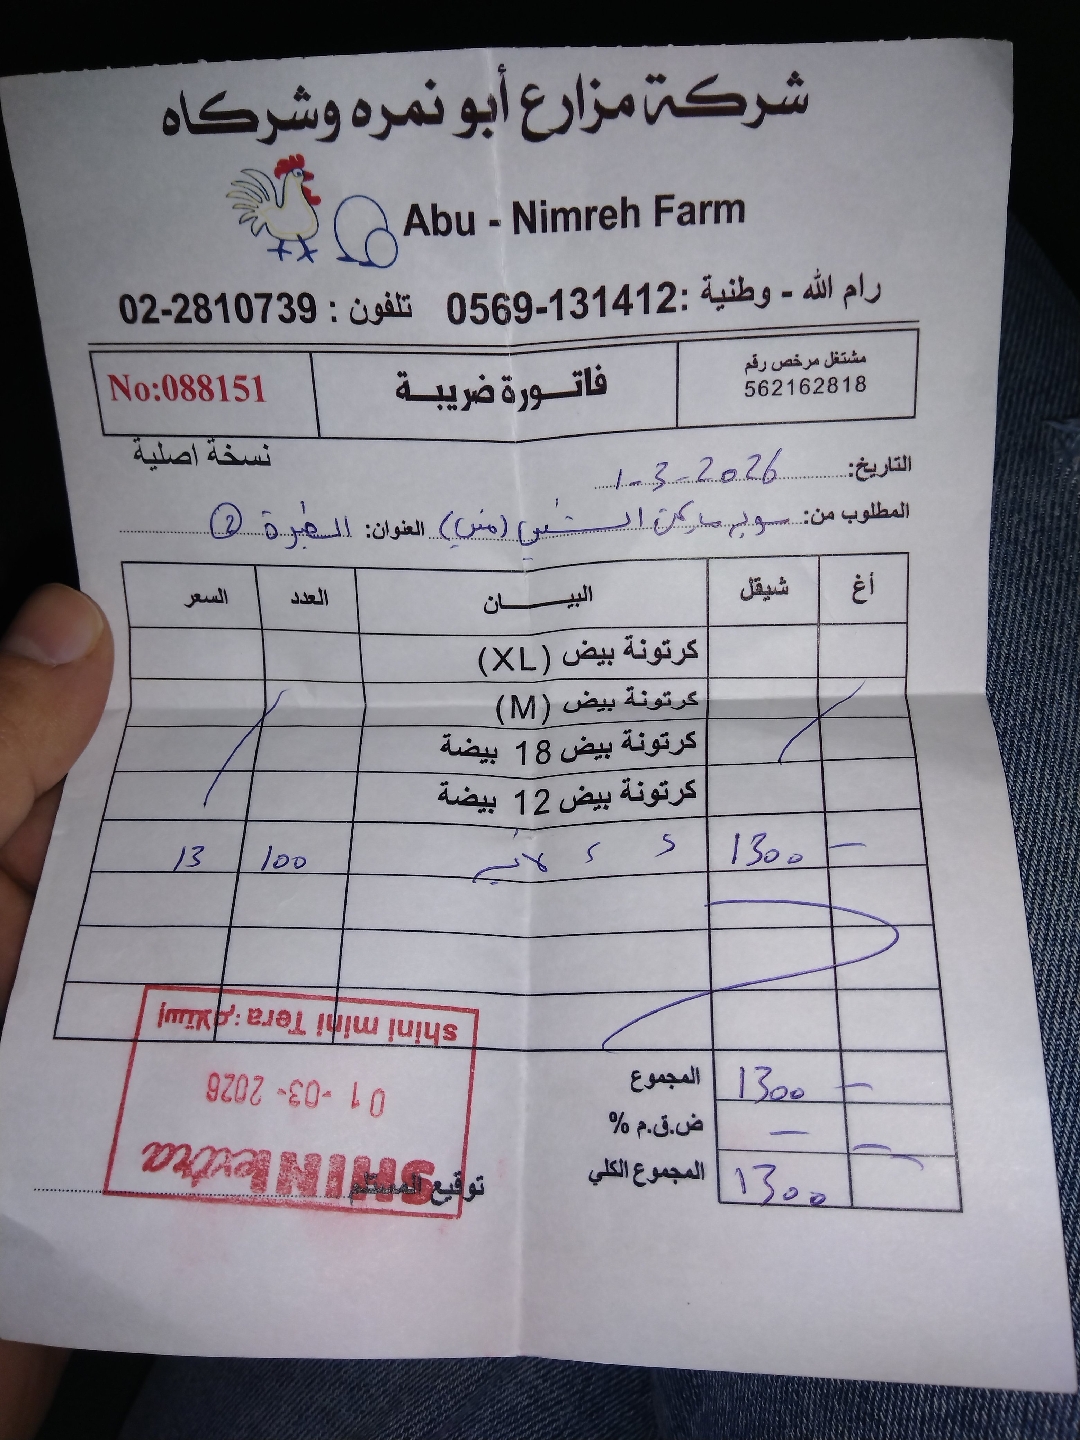 شركة مزارع أبو نمره وشركاه
Abu - Nimreh Farm
رام الله - وطنية :0569-131412 تلفون : 02-2810739
مشتغل مرخص رقم
562162818
فاتـــورة ضريبــة
No:088151
نسخة اصلية
التاريخ: 1-3-2026
المطلوب من: سوبر ماركت الشني (مني) العنوان: الطيرة 2
أغ شيقل البيـــــان العدد السعر
كرتونة بيض (XL)
كرتونة بيض (M)
كرتونة بيض 18 بيضة
كرتونة بيض 12 بيضة
— 1300 100 13
المجموع 1300 —
ض.ق.م % — —
المجموع الكلي 1300
توقيع المستلم
shini mini Tera : إستلام
01-03-2026
SHINI extra